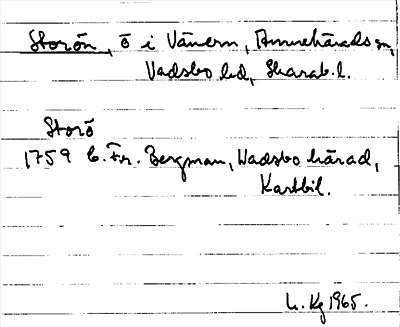 Storön, ö i Vänern, Amnehärads sn,
Vadsbo hd, Skarab. l.
Storö
1759 C. Fr. Bergman, Wadsbo härad,
Kartbil.
L. Kg 1965.